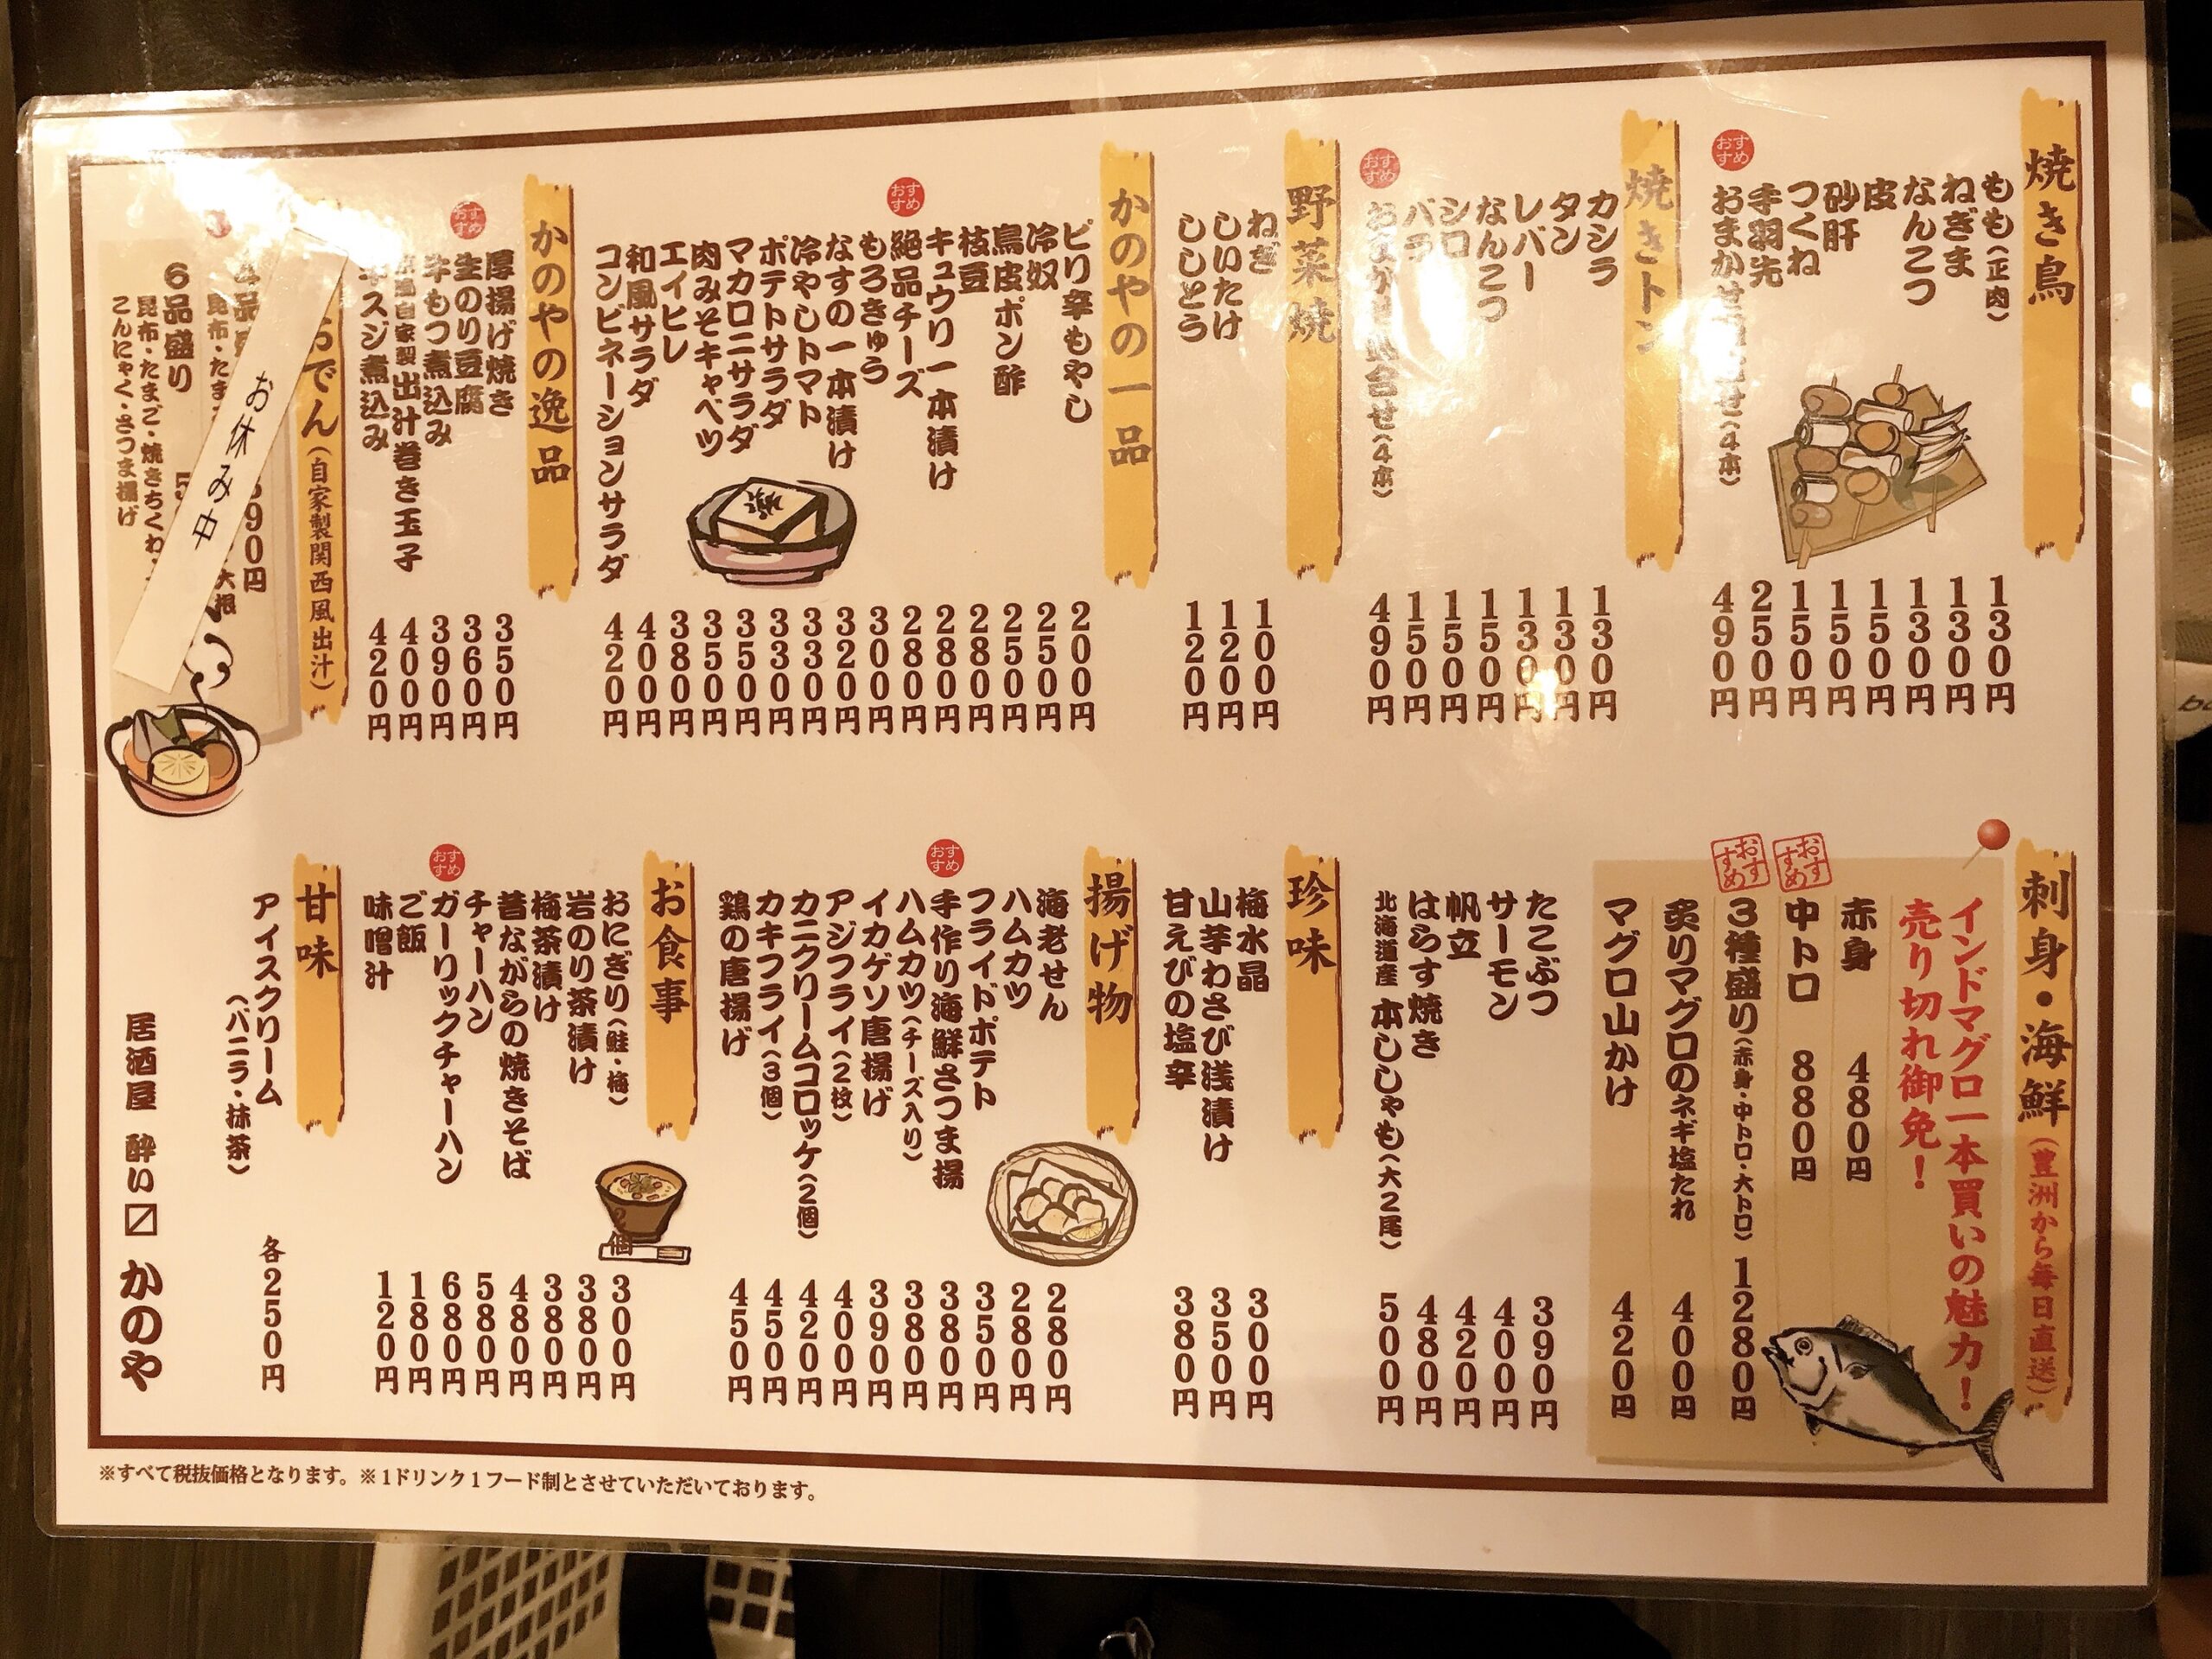 焼き鳥
もも（正肉） 130円
ねぎま 130円
なんこつ 130円
皮 150円
砂肝 150円
つくね 150円
手羽先 250円
おすすめ
おまかせ（4本） 490円
焼きトン
カシラ 130円
タン 130円
レバー 130円
なんこつ 150円
シロ 150円
バラ 150円
おすすめ
合せ（4本） 490円
野菜焼
ねぎ 100円
しいたけ 120円
ししとう 120円
かのやの一品
ピリ辛もやし 200円
冷奴 250円
鳥皮ポン酢 250円
枝豆 280円
キュウリ一本漬け 280円
おすすめ
絶品チーズ 280円
もろきゅう 300円
なすの一本漬け 320円
冷やしトマト 330円
ポテトサラダ 330円
マカロニサラダ 350円
肉みそキャベツ 350円
エイヒレ 380円
和風サラダ 400円
コンビネーションサラダ 420円
かのやの逸品
厚揚げ焼き 350円
おすすめ
生のり豆腐 360円
牛もつ煮込み 390円
自家製出汁巻き玉子 400円
スジ煮込み 420円
おでん（自家製関西風出汁）
90円
大根
6品盛り
昆布・たまご・焼きちくわ・
こんにゃく・さつま揚げ
お休み中
刺身・海鮮（豊洲から毎日直送）
インドマグロ一本買いの魅力！
売り切れ御免！
赤身 480円
おすすめ
中トロ 880円
おすすめ
3種盛り（赤身・中トロ・大トロ） 1280円
炙りマグロのネギ塩たれ 400円
マグロ山かけ 420円
たこぶつ 390円
サーモン 400円
帆立 420円
はらす焼き 480円
北海道産 本ししゃも（大2尾） 500円
珍味
梅水晶 300円
山芋わさび浅漬け 350円
甘えびの塩辛 380円
揚げ物
海老せん 280円
ハムカツ 280円
フライドポテト 350円
おすすめ
手作り海鮮さつま揚 380円
ハムカツ（チーズ入り） 380円
イカゲソ唐揚げ 390円
アジフライ（2枚） 400円
カニクリームコロッケ（2個） 420円
カキフライ（3個） 450円
鶏の唐揚げ 450円
お食事
おにぎり（鮭・梅） 2個 300円
岩のり茶漬け 380円
梅茶漬け 380円
昔ながらの焼きそば 480円
チャーハン 580円
おすすめ
ガーリックチャーハン 680円
ご飯 180円
味噌汁 120円
甘味
アイスクリーム 各250円
（バニラ・抹茶）
居酒屋 酔い〼 かのや
※すべて税抜価格となります。※1ドリンク1フード制とさせていただいております。